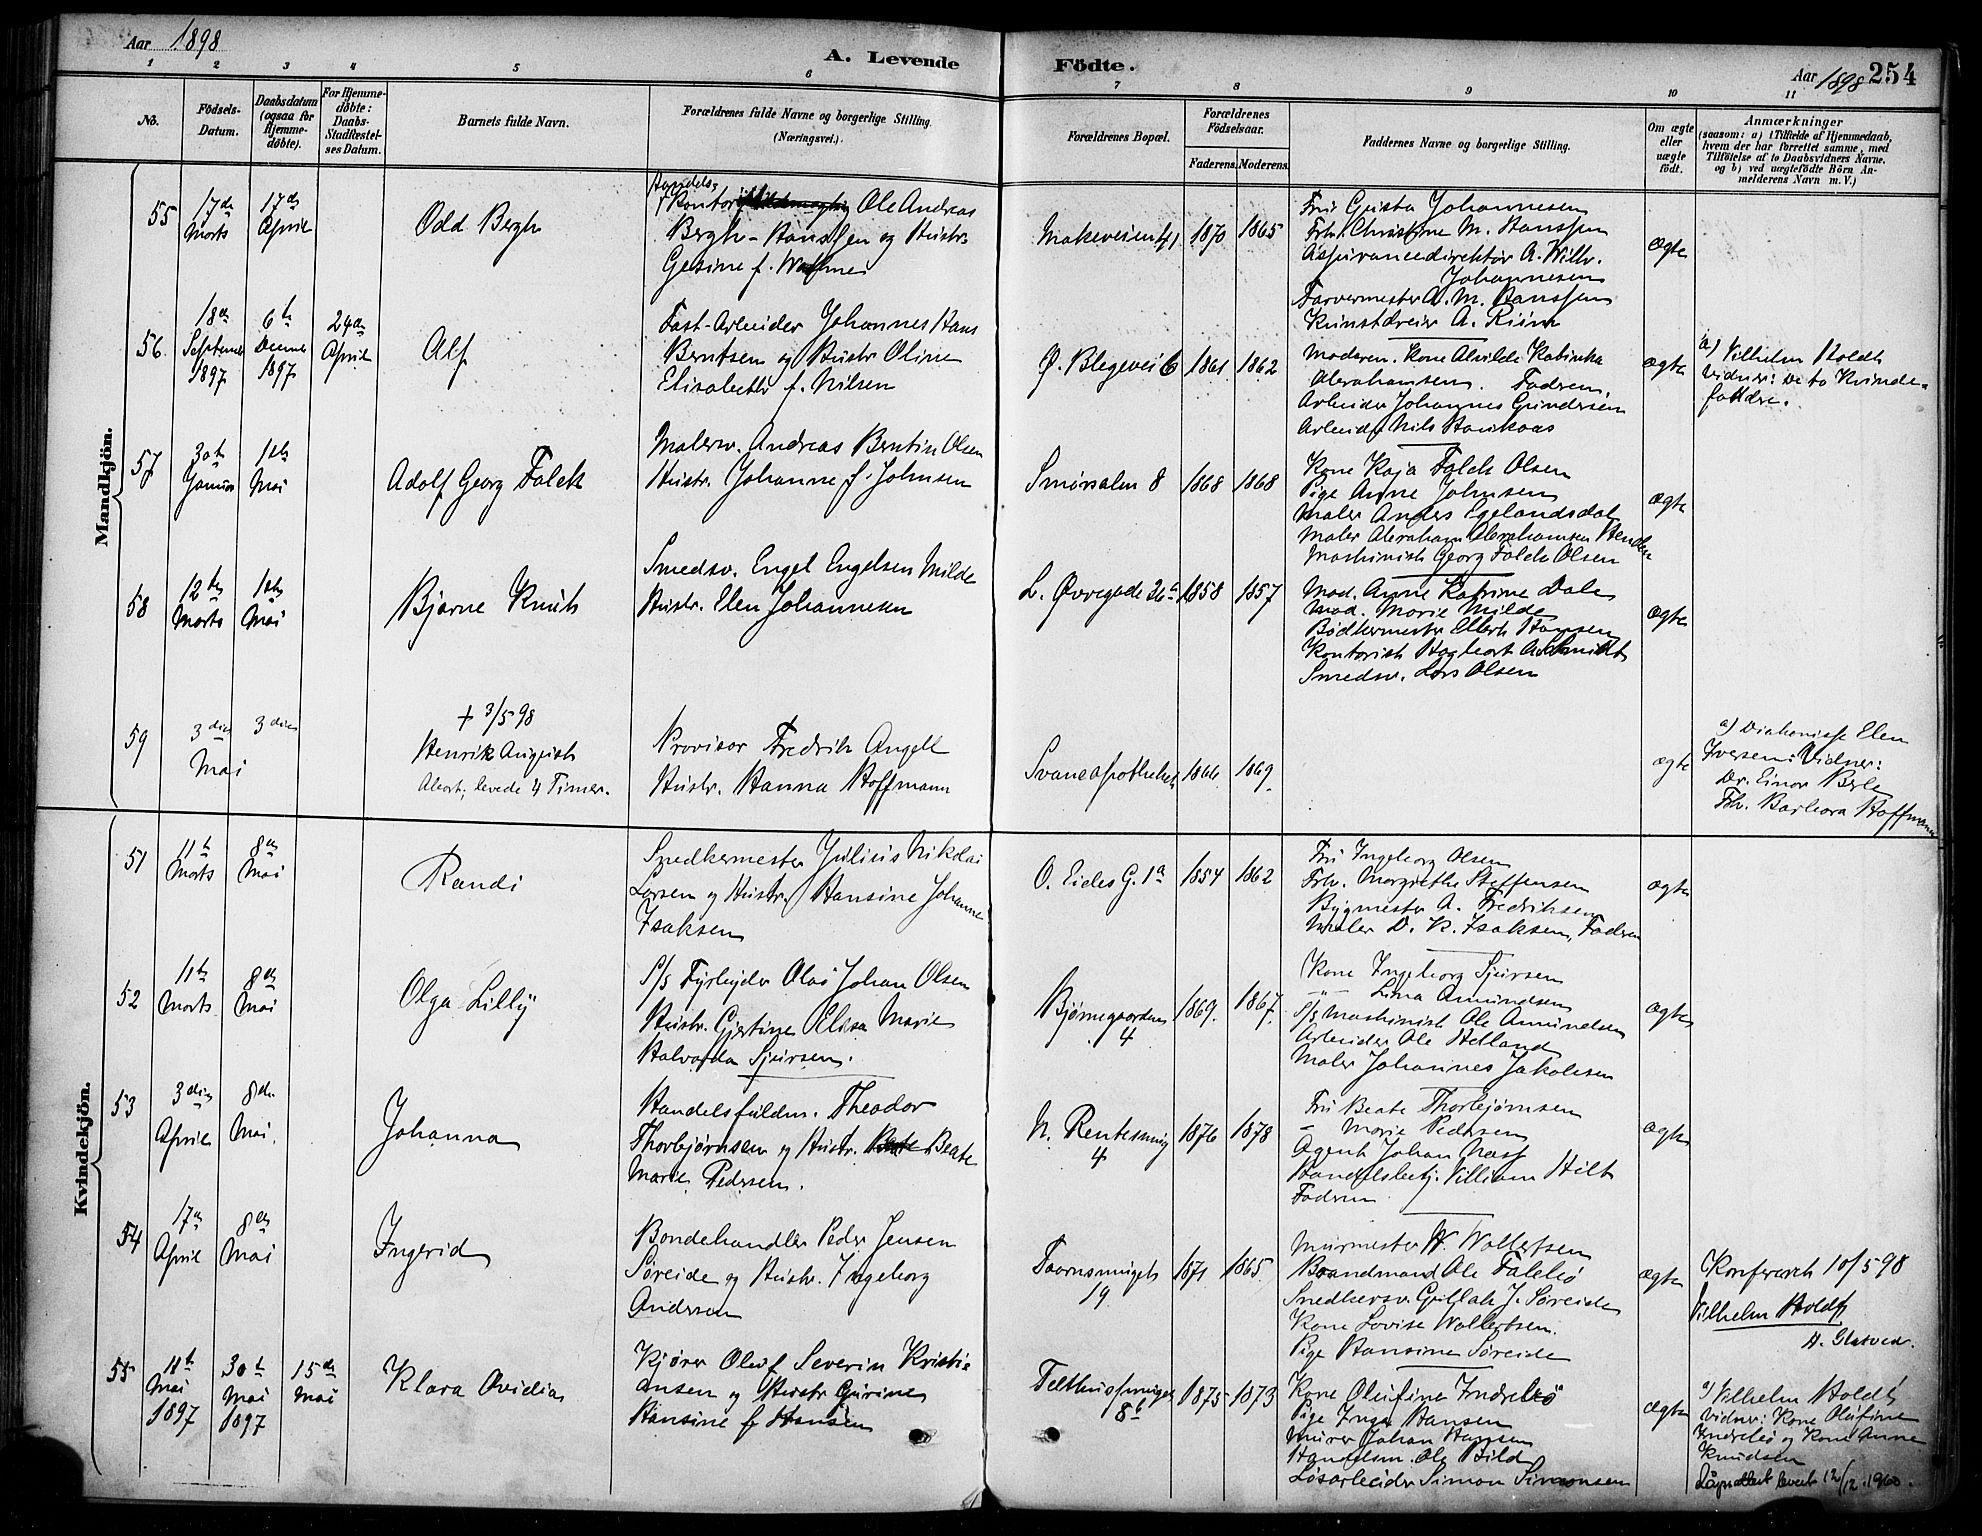 Aar 1898
A. Levende
Födte.
Aar 1898 254
1 2 3 4 5 6 7 8 9 10 11
No.
Födsels-
Datum.
Daabsdatum
(ogsaa for
Hjemme-
döbte).
For Hjemme-
döbte:
Daabs-
Stadfæstel-
ses Datum.
Barnets fulde Navn.
Forældrenes fulde Navne og borgerlige Stilling.
(Næringsvei.)
Forældrenes Bopæl.
Forældrenes
Födselsaar.
Faderens. Moderens.
Faddernes Navne og borgerlige Stilling.
Om ægte
eller
uægte
födt.
Anmærkninger
(saasom: a) i Tilfælde af Hjemmedaab,
hvem der har forrettet samme, med
Tilföielse af to Daabsvidners Navne.
og b) ved uægtefödte Börn An-
melderens Navn m. V.)
Mandkjön.
55
17de
Marts
17de
April
Odd Bergh
Handels-
Kontor Ole Andreas
Bergh-Hanssen og Hustr.
Gesine f.
1870
1865
Fru Gusta Johannesen
Frk. Christine M. Hanssen
Assurancedirektør A. Wilh.
Johannesen
Farvermester A. M. Hanssen
Kunstdreier A. Riim
ægte
56.
18de
September
1897
6te
Decmb
1897
24de
April
Alf
Fast-Arbeider Johannes Hans
Berntsen og Hustr. Oline
Elisabeth f. Nilsen
Ø. Blegevei 6
1861
1862
Moderen. Kone Alvilde Kabinka
Abrahamsen. Faderen,
Arbeider Johannes Gundersen
Arbeider Nils Haukaas
ægte
a) Vilhelm Holdt
Vidner: De to Kvinde-
faddre.
57
30te
Januar
1ste
Mai
Adolf Georg Falck
Malersv. Andreas Berntin Olsen
Hustr. Johanne f. Johnsen
Smørsalm 8
1868
1868
Kone Kaja Falck Olsen
Pige Anne Johnsen
Maler Anders Egelandsdal
Maler Abraham Abrahamsen
Maskinist Georg Falck Olsen
ægte
58
12te
Marts
1ste
Mai
Bjarne Knut
Smedsv. Engel Engelsen Milde
Hustr. Elen Johannesen
L. Øvregade 26a
1858
1857
Mad. Anne Katrine Dale
Mad. Marie Milde
Bødkermester Ellert Hansen
Kontorist Hagbart A. Schmidt
Smedsv. Lars Olsen
ægte
59
3die
Mai
3die
+ 3/5 98
Henrik August
Abort, levede 4 Timer.
Provisor Fredrik Angell
Hustr. Hanna Hoffmann
Svaneapotheket
1866
1869.
ægte
a) Diakonisse Elen
Iversen: Vidner:
Dr. Einar Berle
Frk. Barbara Hoffmann
Kvindekjön.
51
11te
Marts
8de
Mai
Randi
Snedkermester Julius Nikolai
Larsen og Hustr. Hansine Johanne
Isaksen
O. Eides G. 1a
1854
1862
Fru Ingeborg Olsen
Frk. Margrethe Steffensen
Bygmester A. Fredriksen
Maler D. K. Isaksen, Faderen
ægte
52
11te
Marts
8de
Mai
Olga Lilly
S/S Fyrbøder Olai Johan Olsen
Hustr. Gjertine Elisa Marie
Halvarda Sjursen.
Bjørnegaarden
4
1869.
1867.
Kone Ingeborg Sjursen
-"- Lina Amundsen
S/S Maskinist Ole Amundsen
Arbeider Ole Helland
Maler Johannes Jakobsen
ægte
53
3die
April
8de
Mai.
Johanna
Handelsfuldm. Theodor
Thorbjørnsen og Hustr. Beate
Marie Pedersen.
N. Rentesmug
4
1876
1878
Fru Beate Thorbjørnsen
- Marie Pedersen
Agent Johan Næss
Handelsbetj. Villiam Hilt
Faderen
ægte
54
17de
April
8de
Mai
Ingerid
Bondehandler Peder Jensen
Søreide og Hustr. Ingeborg
Andersen
Taarnsmuget
19
1871
1865
Murmester W. Wallertsen
Brandmand Ole Falebø
Snedkersv. Gullak J. Søreide
Kone Lovise Wallertsen.
Pige Hansine Søreide
ægte
Konfereret 10/5 98
Vilhelm Holdt
55
11te
Mai
1897
30te
Mai
1897
15de
Mai
Klara Ovidia
Kjører Oluf Severin Kristi-
ansen og Hustr. Gurine
Hansine f. Hansen
Telthussmuget
8b
1875
1873
Kone Olufine Indrebø
Pige Inga Hansen
Murer Johan Hansen
Handelsm. Ole Bild
Løsarbeider Simon Simonsen
ægte
a) Vilhelm Holdt
Vidner: Kone Olufine
Indrebø og Kone Anne
Knudsen
Dåpsattest levert 12/12.1960.